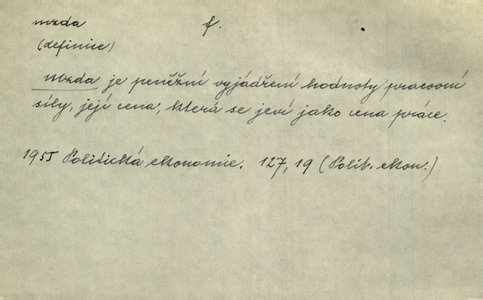 mzda f.
(definice)
mzda je peněžní vyjádření hodnoty pracovní
síly, její cena, která se jeví jako cena práce.
1955 Politická ekonomie. 127, 19 (Polit. ekon.)